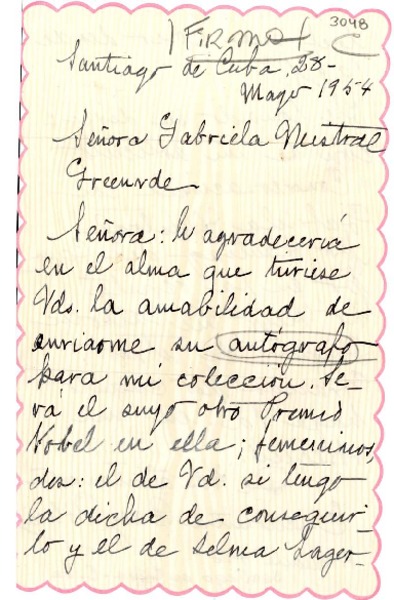 3048
FIRMA
Santiago de Cuba, 28-
Mayo 1954
Señora Gabriela Mistral
Señora: le agradecería
en el alma que tuviese
Vds. la amabilidad de
enviarme su autógrafo
para mi colección. Se-
rá el suyo otro Premio
Nobel en ella; femeninos,
dos: el de Vd. si tengo
la dicha de conseguir-
lo y el de Selma Lager-